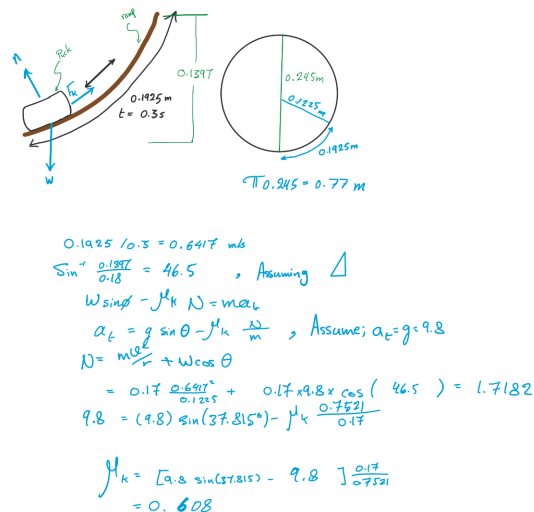 ramp
Puck
n
Fk
0.1397
0.1925m
t = 0.3s
W
0.245m
0.1225m
0.1925m
π0.245 = 0.77 m
0.1925 /0.3 = 0.6417 m/s
Sin⁻¹ 0.1397/0.18 = 46.5 , Assuming
W sinø - μk N = mat
at = g sin θ - μk N/m , Assume; at=g=9.8
N = mv²/r + W cos θ
= 0.17 0.6417²/0.1225 + 0.17×9.8× cos ( 46.5 ) = 1.7182
9.8 = (9.8) sin(37.815°) - μk 0.7521/0.17
μk = [9.8 sin(37.815) - 9.8 ] 0.17/0.7521
= 0.608